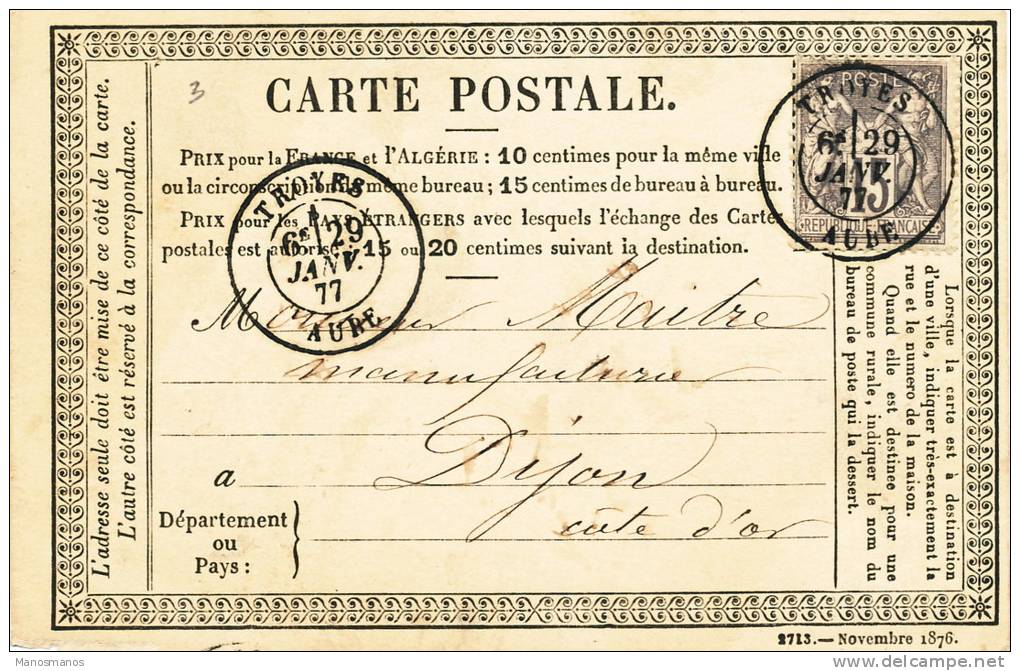 3
CARTE POSTALE.
PRIX pour la FRANCE et l'ALGÉRIE : 10 centimes pour la même ville
ou la circonscription du même bureau ; 15 centimes de bureau à bureau.
PRIX pour les PAYS ÉTRANGERS avec lesquels l'échange des Cartes
postales est autorisé : 15 ou 20 centimes suivant la destination.
POSTE
15
REPUBLIQUE FRANÇAISE
TROYES
6E 29
JANV.
77
AUBE
TROYES
6E 29
JANV.
77
AUBE
Monsieur Maitre
manufacturier
a Dijon
côte d'or
Département
ou
Pays :
L'adresse seule doit être mise de ce côté de la carte.
L'autre côté est réservé à la correspondance.
Lorsque la carte est à destination
d'une ville, indiquer très-exactement la
rue et le numéro de la maison.
Quand elle est destinée pour une
commune rurale, indiquer le nom du
bureau de poste qui la dessert.
2713.— Novembre 1876.
Manosmanos
delcampe.net